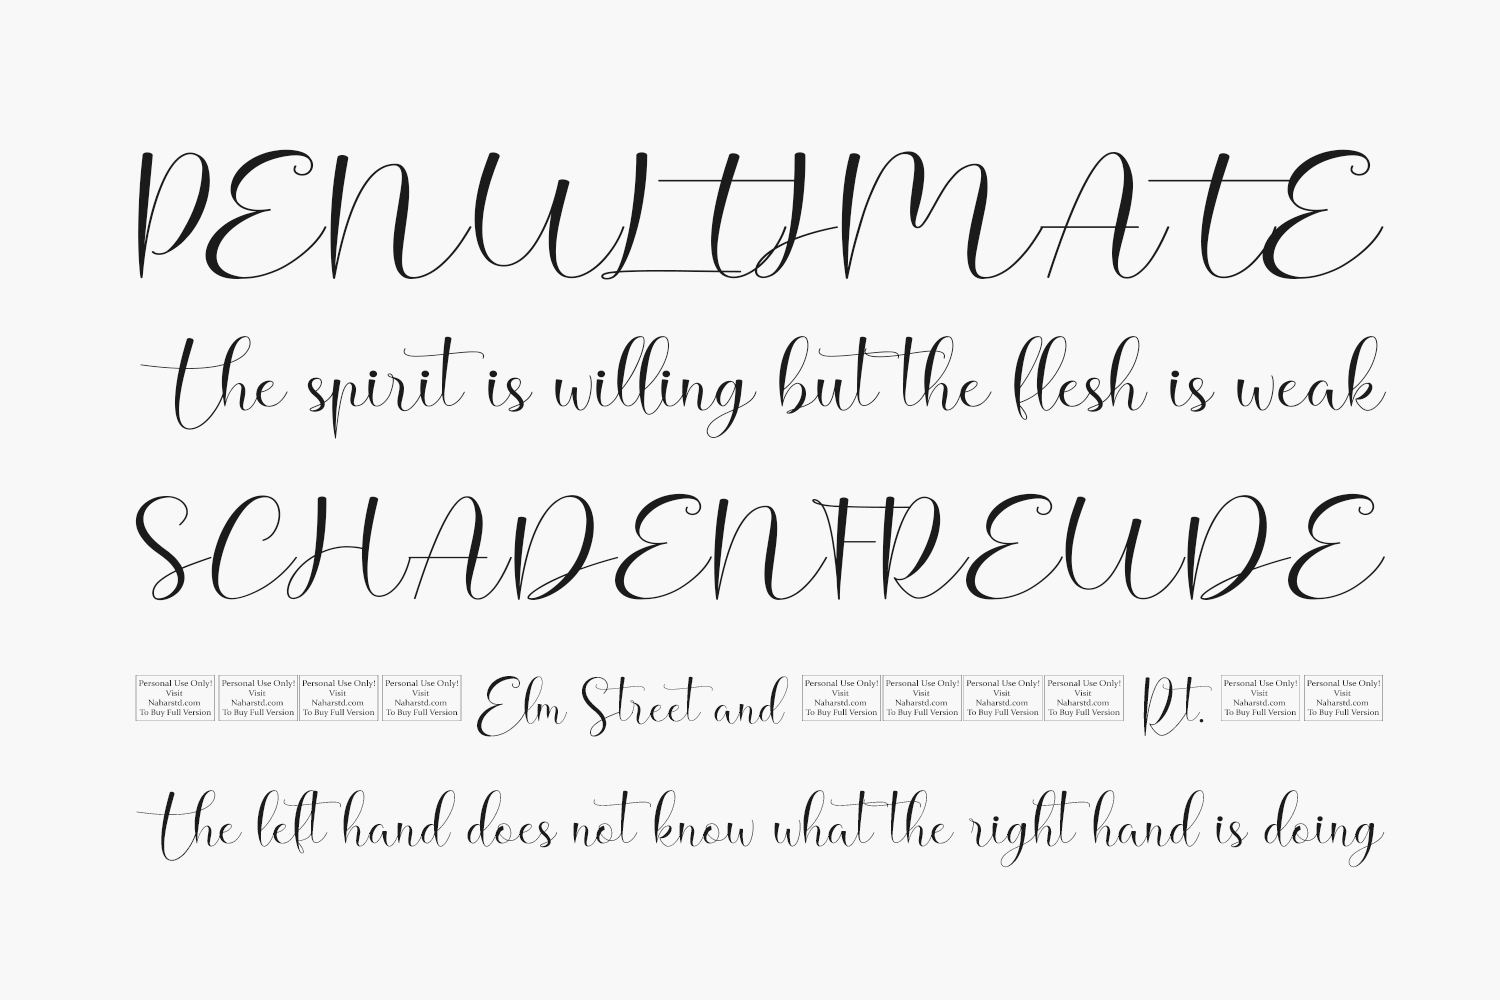 PENULTIMATE
the spirit is willing but the flesh is weak
SCHADENFREUDE
Personal Use Only! Visit Naharstd.com To Buy Full Version Personal Use Only! Visit Naharstd.com To Buy Full Version Personal Use Only! Visit Naharstd.com To Buy Full Version Personal Use Only! Visit Naharstd.com To Buy Full Version Elm Street and Personal Use Only! Visit Naharstd.com To Buy Full Version Personal Use Only! Visit Naharstd.com To Buy Full Version Personal Use Only! Visit Naharstd.com To Buy Full Version Personal Use Only! Visit Naharstd.com To Buy Full Version Rt. Personal Use Only! Visit Naharstd.com To Buy Full Version Personal Use Only! Visit Naharstd.com To Buy Full Version
the left hand does not know what the right hand is doing